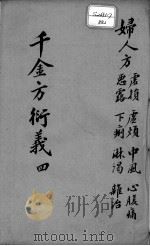 婦人方
虛損 虛煩 中風 心腹痛
惡露 下痢 淋渴 雜治
千金方衍義 四